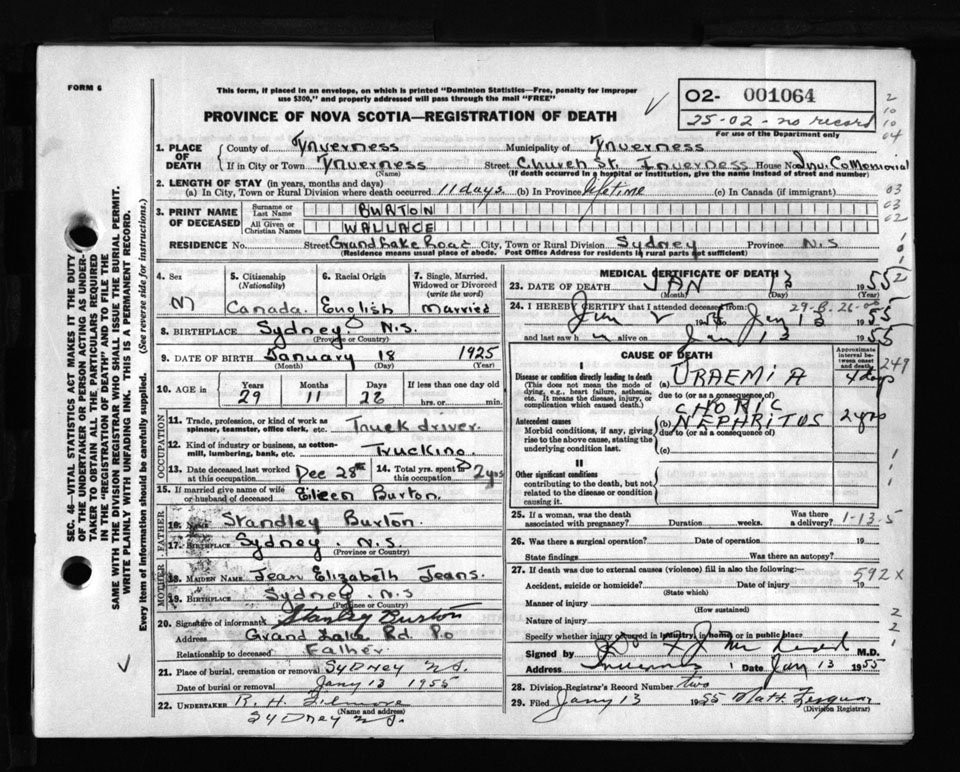 FORM 6
This form, if placed in an envelope, on which is printed "Dominion Statistics—Free, penalty for improper
use $300," and properly addressed will pass through the mail "FREE"
PROVINCE OF NOVA SCOTIA—REGISTRATION OF DEATH
02- 001064
25-02 - no record
For use of the Department only
2
10
10
04
1. PLACE OF DEATH
County of Inverness Municipality of Inverness
If in City or Town Inverness Street Church St. Inverness House No. Inv. Co Memorial
(Name) (If death occurred in a hospital or institution, give the name instead of street and number)
2. LENGTH OF STAY (in years, months and days)
(a) In City, Town or Rural Division where death occurred 11 days (b) In Province lifetime (c) In Canada (if immigrant)
03
03
02
3. PRINT NAME OF DECEASED
Surname or Last Name BURTON
All Given or Christian Names WALLACE
RESIDENCE No. Street Grand Lake Road City, Town or Rural Division Sydney Province N.S
(Residence means usual place of abode. Post Office Address for residents in rural parts not sufficient)
4. Sex M
5. Citizenship (Nationality) Canada
6. Racial Origin English
7. Single, Married, Widowed or Divorced (write the word) Married
8. BIRTHPLACE Sydney N.S.
(Province or Country)
9. DATE OF BIRTH January 18 1925
(Month) (Day) (Year)
10. AGE in Years Months Days If less than one day old
29 11 26 hrs. or min.
OCCUPATION
11. Trade, profession, or kind of work as spinner, teamster, office clerk, etc. Truck driver.
12. Kind of industry or business, as cotton-mill, lumbering, bank, etc. Trucking
13. Date deceased last worked at this occupation Dec 28th 14. Total yrs. spent in this occupation 2 yrs
15. If married give name of wife or husband of deceased Eileen Burton.
FATHER
16. Standley Burton.
17. Birthplace Sydney . N.S.
(Province or Country)
MOTHER
18. MAIDEN NAME Jean Elizabeth Jeans.
19. BIRTHPLACE Sydney . N.S
(Province or Country)
20. Signature of informant Stanley Burton
Address Grand Lake Rd. Po
Relationship to deceased Father
21. Place of burial, cremation or removal SYDNEY NS.
Date of burial or removal Jany 13 1955
22. UNDERTAKER R. H.
(Name and address)
SYDNEY NS.
MEDICAL CERTIFICATE OF DEATH
23. DATE OF DEATH JAN 13 1955
(Month) (Day) (Year)
24. I HEREBY CERTIFY that I attended deceased from
Jan 2 1955 to Jan 13 1955
and last saw h m alive on Jan 13 1955
CAUSE OF DEATH
Approximate interval between onset and death
I
Disease or condition directly leading to death
(This does not mean the mode of dying, e.g., heart failure, asthenia, etc. It means the disease, injury, or complication which caused death.)
(a) URAEMIA 4 days
due to (or as a consequence of)
Antecedent causes
Morbid conditions, if any, giving rise to the above cause, stating the underlying condition last.
CHORIC
(b) NEPHRITUS 2 yrs
due to (or as a consequence of)
(c)
II
Other significant conditions
contributing to the death, but not related to the disease or condition causing it.
25. If a woman, was the death associated with pregnancy? Duration weeks. Was there a delivery?
1-13-5
26. Was there a surgical operation? Date of operation 19
State findings Was there an autopsy?
27. If death was due to external causes (violence) fill in also the following:—
592 x
Accident, suicide or homicide? Date of injury 19
(State which)
Manner of injury
(How sustained)
Nature of injury
Specify whether injury occured in industry, in home or in public place
Signed by M.D.
Address Inverness Date Jan 13 1955
28. Division Registrar's Record Number two
29. Filed Jany 13 1955
(Division Registrar)
SEC. 46—VITAL STATISTICS ACT MAKES IT THE DUTY
OF THE UNDERTAKER OR PERSON ACTING AS UNDER-
TAKER TO OBTAIN ALL THE PARTICULARS REQUIRED
IN THE "REGISTRATION OF DEATH" AND TO FILE THE
SAME WITH THE DIVISION REGISTRAR WHO SHALL ISSUE THE BURIAL PERMIT.
WRITE PLAINLY WITH UNFADING INK. THIS IS A PERMANENT RECORD.
Every item of information should be carefully supplied. (See reverse side for instructions.)